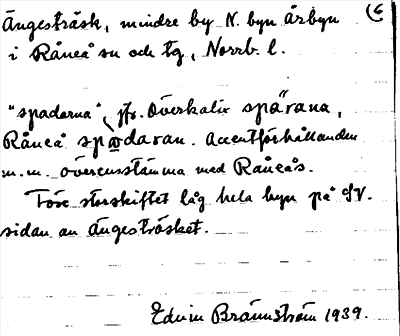 Ängesträsk, mindre by N. byn Årbyn (6
i Råneå sn och tg, Norrb. l.
"spaderna", jfr. Överkalix spärana,
Råneå spadaran. Accentförhållanden
m.m. överensstämma med Råneås.
Före storskiftet låg hela byn på SV.
sidan av Ängesträsket.
Edvin Brännström 1939.